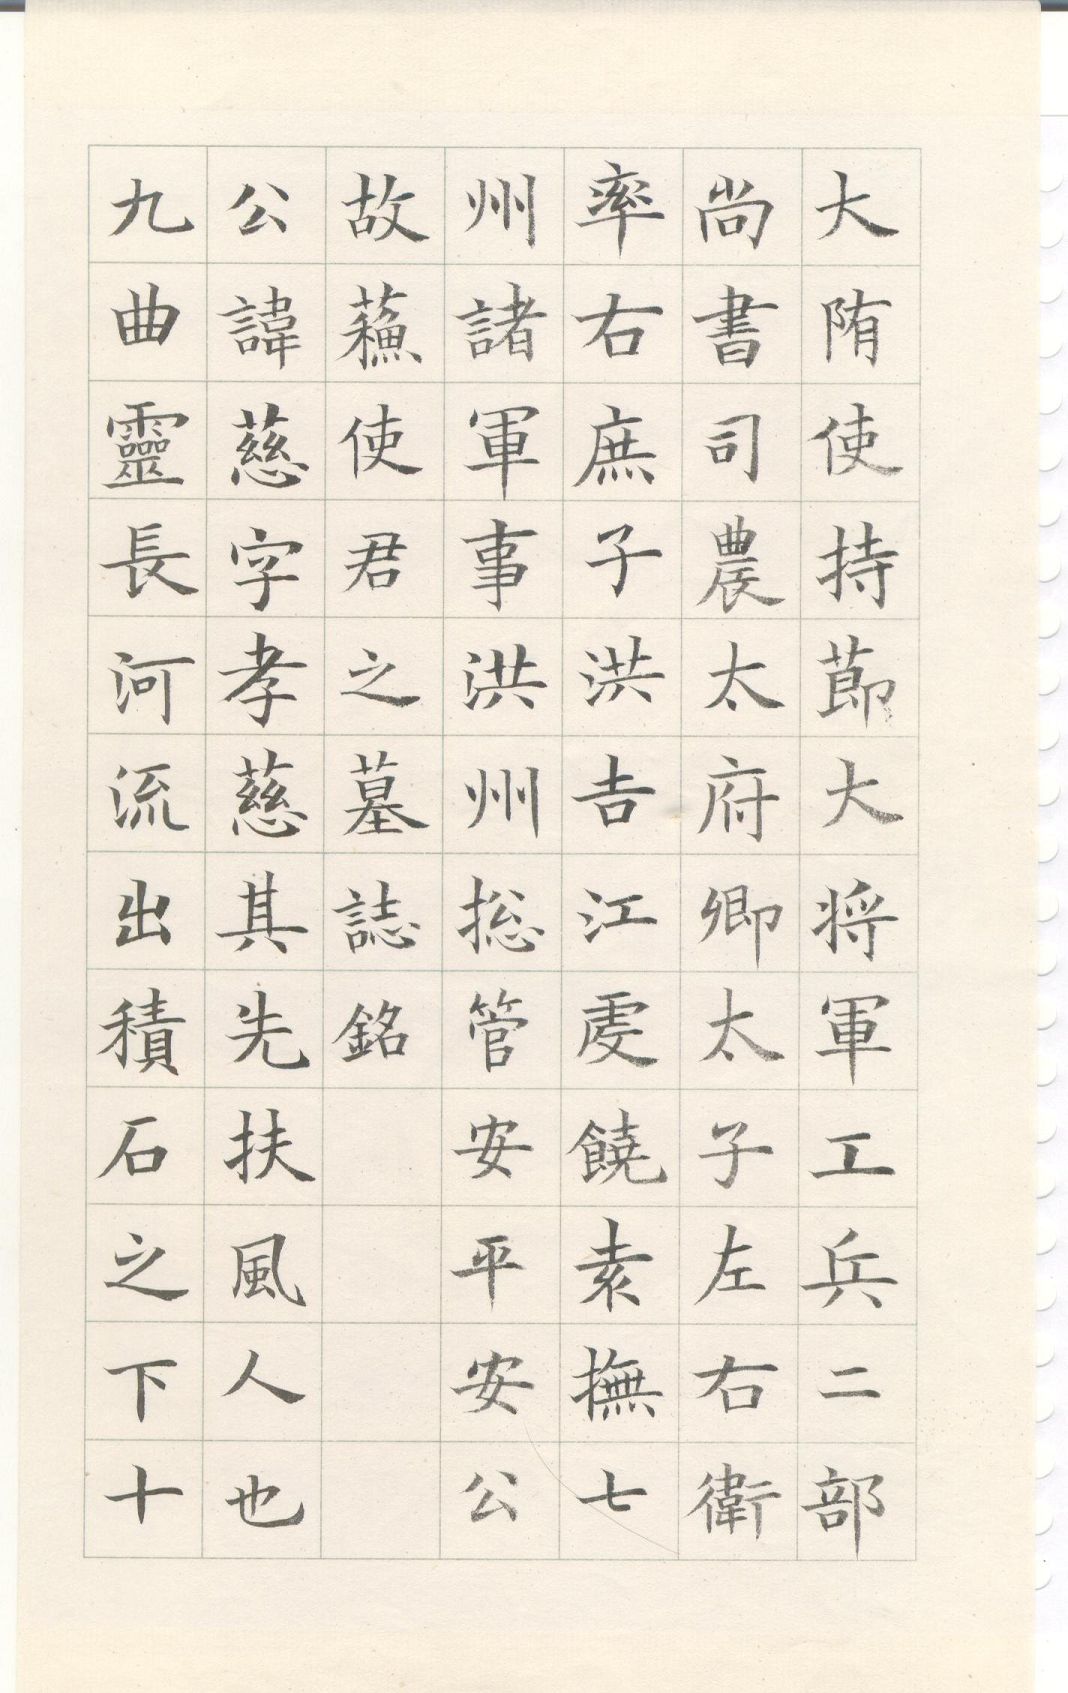 大陏使持莭大将軍工兵二部
尚書司農太府卿太子左右衛
率右庶子洪吉江虔饒袁撫七
州諸軍事洪州捴管安平安公
故蘓使君之墓誌銘
公諱慈字孝慈其先扶風人也
九曲靈長河流出積石之下十